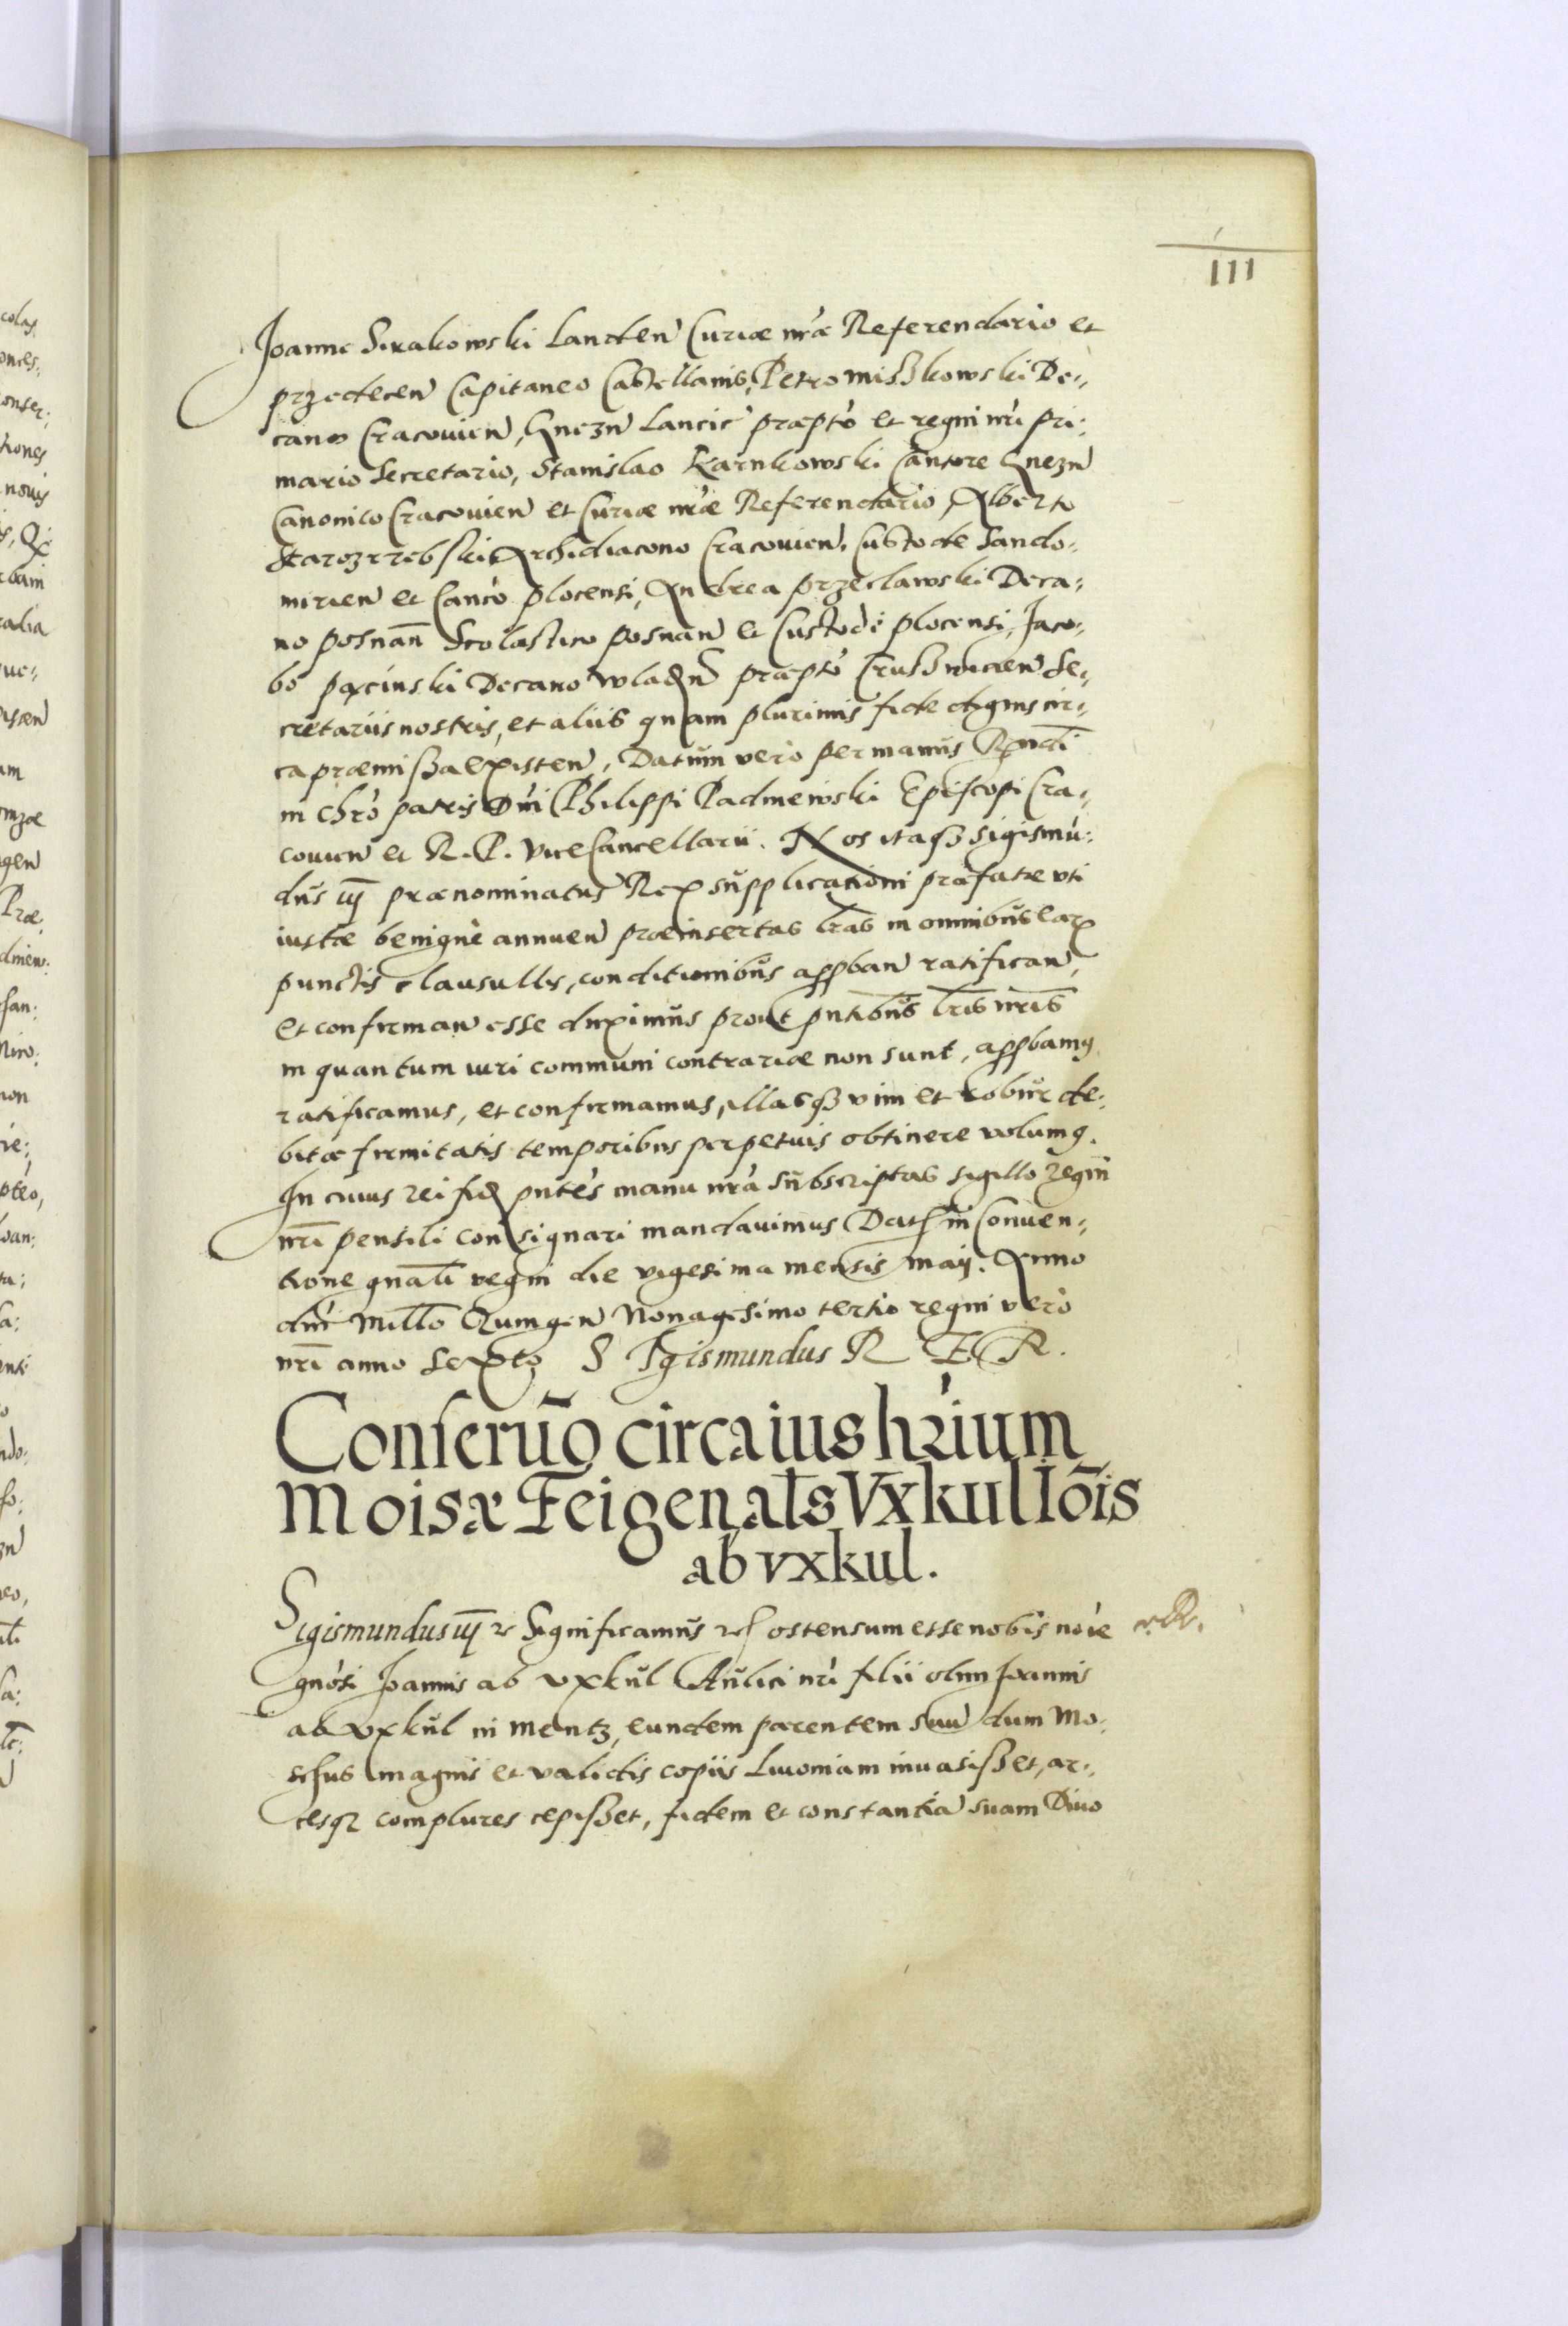 111
Joanne Sirakowski Landen Curiæ nræ Referendario et
przedecen Capitaneo Castellanis, Petro Miszkowski De-
cano Cracovien, Gnezn Lancic præpto et regni nri pri:
mario Secretario, Stanislao Karnkowski Cantore Gnezn
Canonico Cracovien et Curiæ nræ Referendario, Alberto
Starozrebski Archidiacono Cracovien, Custode Sando:
mirien et Canco plocensi, Andrea przeclawski Deca:
no posnan Scolastico posnan et Custode plocensi, Jaco:
bo pacinski Decano wladn præpto Crusswicien Se:
cretariis nostris, et aliis quam plurimis fide dignis cir:
ca præmissa existen, Datum vero per manus Rndi
in Chro patris Dni Philippi Padniewski Episcopi Cra:
covien et R. P. ViceCancellarii. Nos itaq3 Sigismu:
dus iij prænominatus Rex supplicationi præfatæ vti
iustæ benignè annuen præinsertas lras in omnibus earu
punctis clausullis, conditionibus appban ratifican,
et confirman esse duximus prout pntibus lris nris
in quantum iuri communi contrariæ non sunt, appbamus
ratificamus, et confirmamus, illasq3 vim et robur de:
bitæ firmitatis temporibus perpetuis obtinere volumus.
In cuius rei fidem pntes manu nra subscriptas sigillo regni
nri pensili consignari mandavimus Dat in Conven:
tione gnali regni die vigesima mensis maij. Anno
dni Millo Quingen Nonagesimo tertio regni vero
nri anno sexto Sigismundus REX
Conseruo circa ius hrium
Moisæ Feigen als Vxkul Iois
ab vxkul.
Sigismundus iij etc Significamus etc ostensum esse nobis noie
gnosi Joannis ab vxkul Aulici nri filii olim Joannis
ab vxkul in Mentz, eundem parentem suu dum Mo:
schus magnis et validis copiis Livoniam invasisset, ar:
cesq complures cepisset, fidem et constantia suam Divo